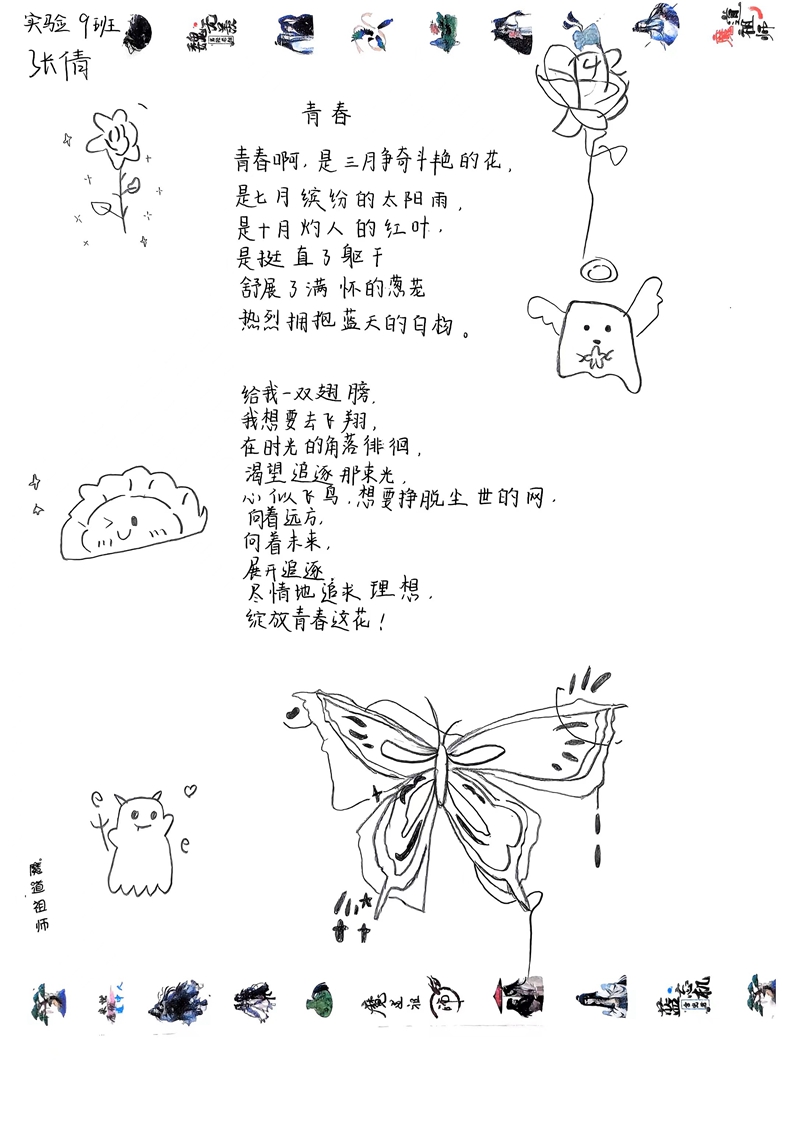 实验9班
张倩
魏无羡
魔道祖师
42
青春
青春啊,是三月争奇斗艳的花,
是七月缤纷的太阳雨,
是十月灼人的红叶,
是挺直了躯干
舒展了满怀的葱茏
热烈拥抱蓝天的白杨。
给我一双翅膀,
我想要去飞翔,
在时光的角落徘徊,
渴望追逐那束光,
心似飞鸟,想要挣脱尘世的网.
向着远方,
向着未来,
展开追逐,
尽情地追求理想,
绽放青春这花!
魔道祖师
魔道祖师
蓝忘机